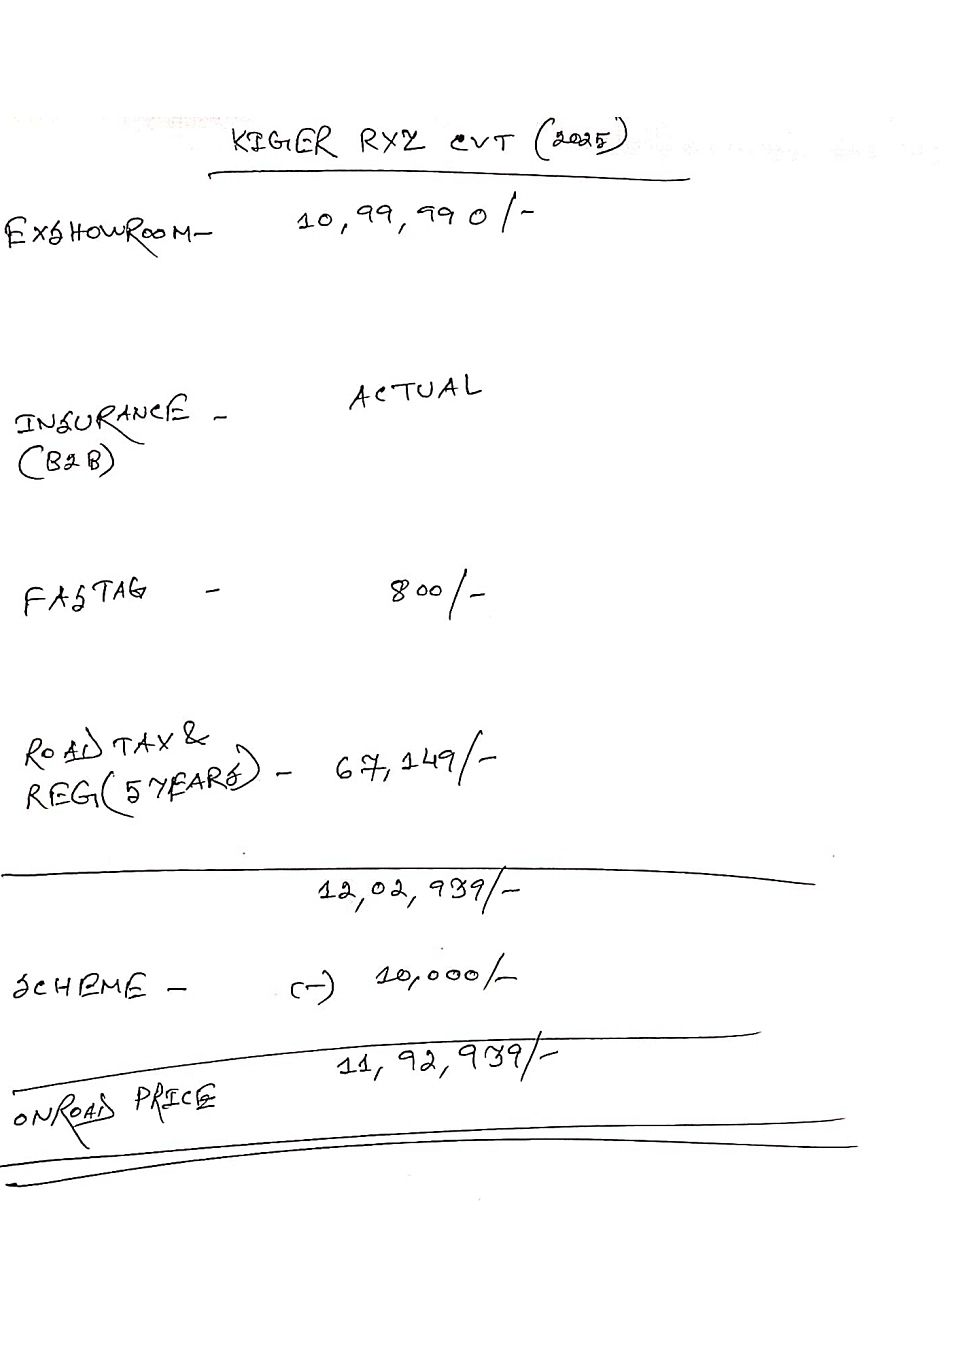 KIGER RXZ CVT (2025)
EXSHOWROOM- 10,99,990/-
INSURANCE - ACTUAL
(B2B)
FASTAG - 800/-
ROAD TAX &
REG(5 YEARS) - 67,149/-
12,02,939/-
SCHEME - (-) 10,000/-
11,92,939/-
ONROAD PRICE